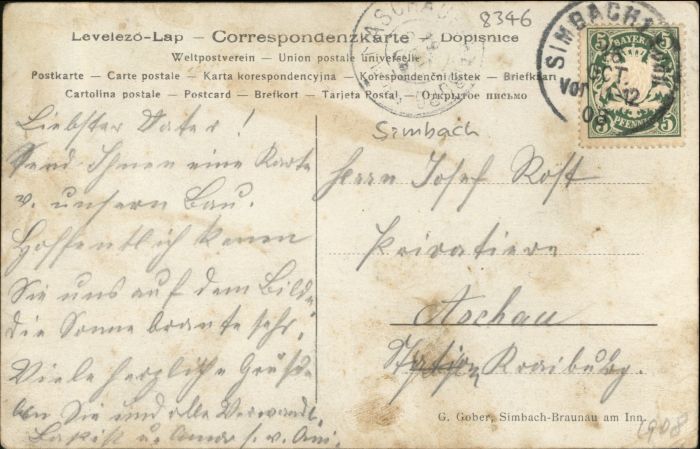 8346
Levelező-Lap — Correspondenzkarte — Dopisnice
Weltpostverein — Union postale universelle
Postkarte — Carte postale — Karta korespondencyjna — Korespondenční listek — Briefkaart
Cartolina postale — Postcard — Brefkort — Tarjeta Postal — Открытое письмо
ASCHAU
SIMBACH
28
OCT.
Vor
12
08
5 BAYERN 5
PFENNIG
Simbach
Liebster Vater!
Send Ihnen eine Karte
v. unsern Bau.
Hoffentlich kenen
Sie uns auf dem Bilde,
die Sonne brante sehr.
Viele herzliche Grüße
an Sie und alle Verwandt.
u.
Herrn Josef Röst
Privatiere
Aschau
Station Kraiburg.
G. Gober, Simbach-Braunau am Inn
1908